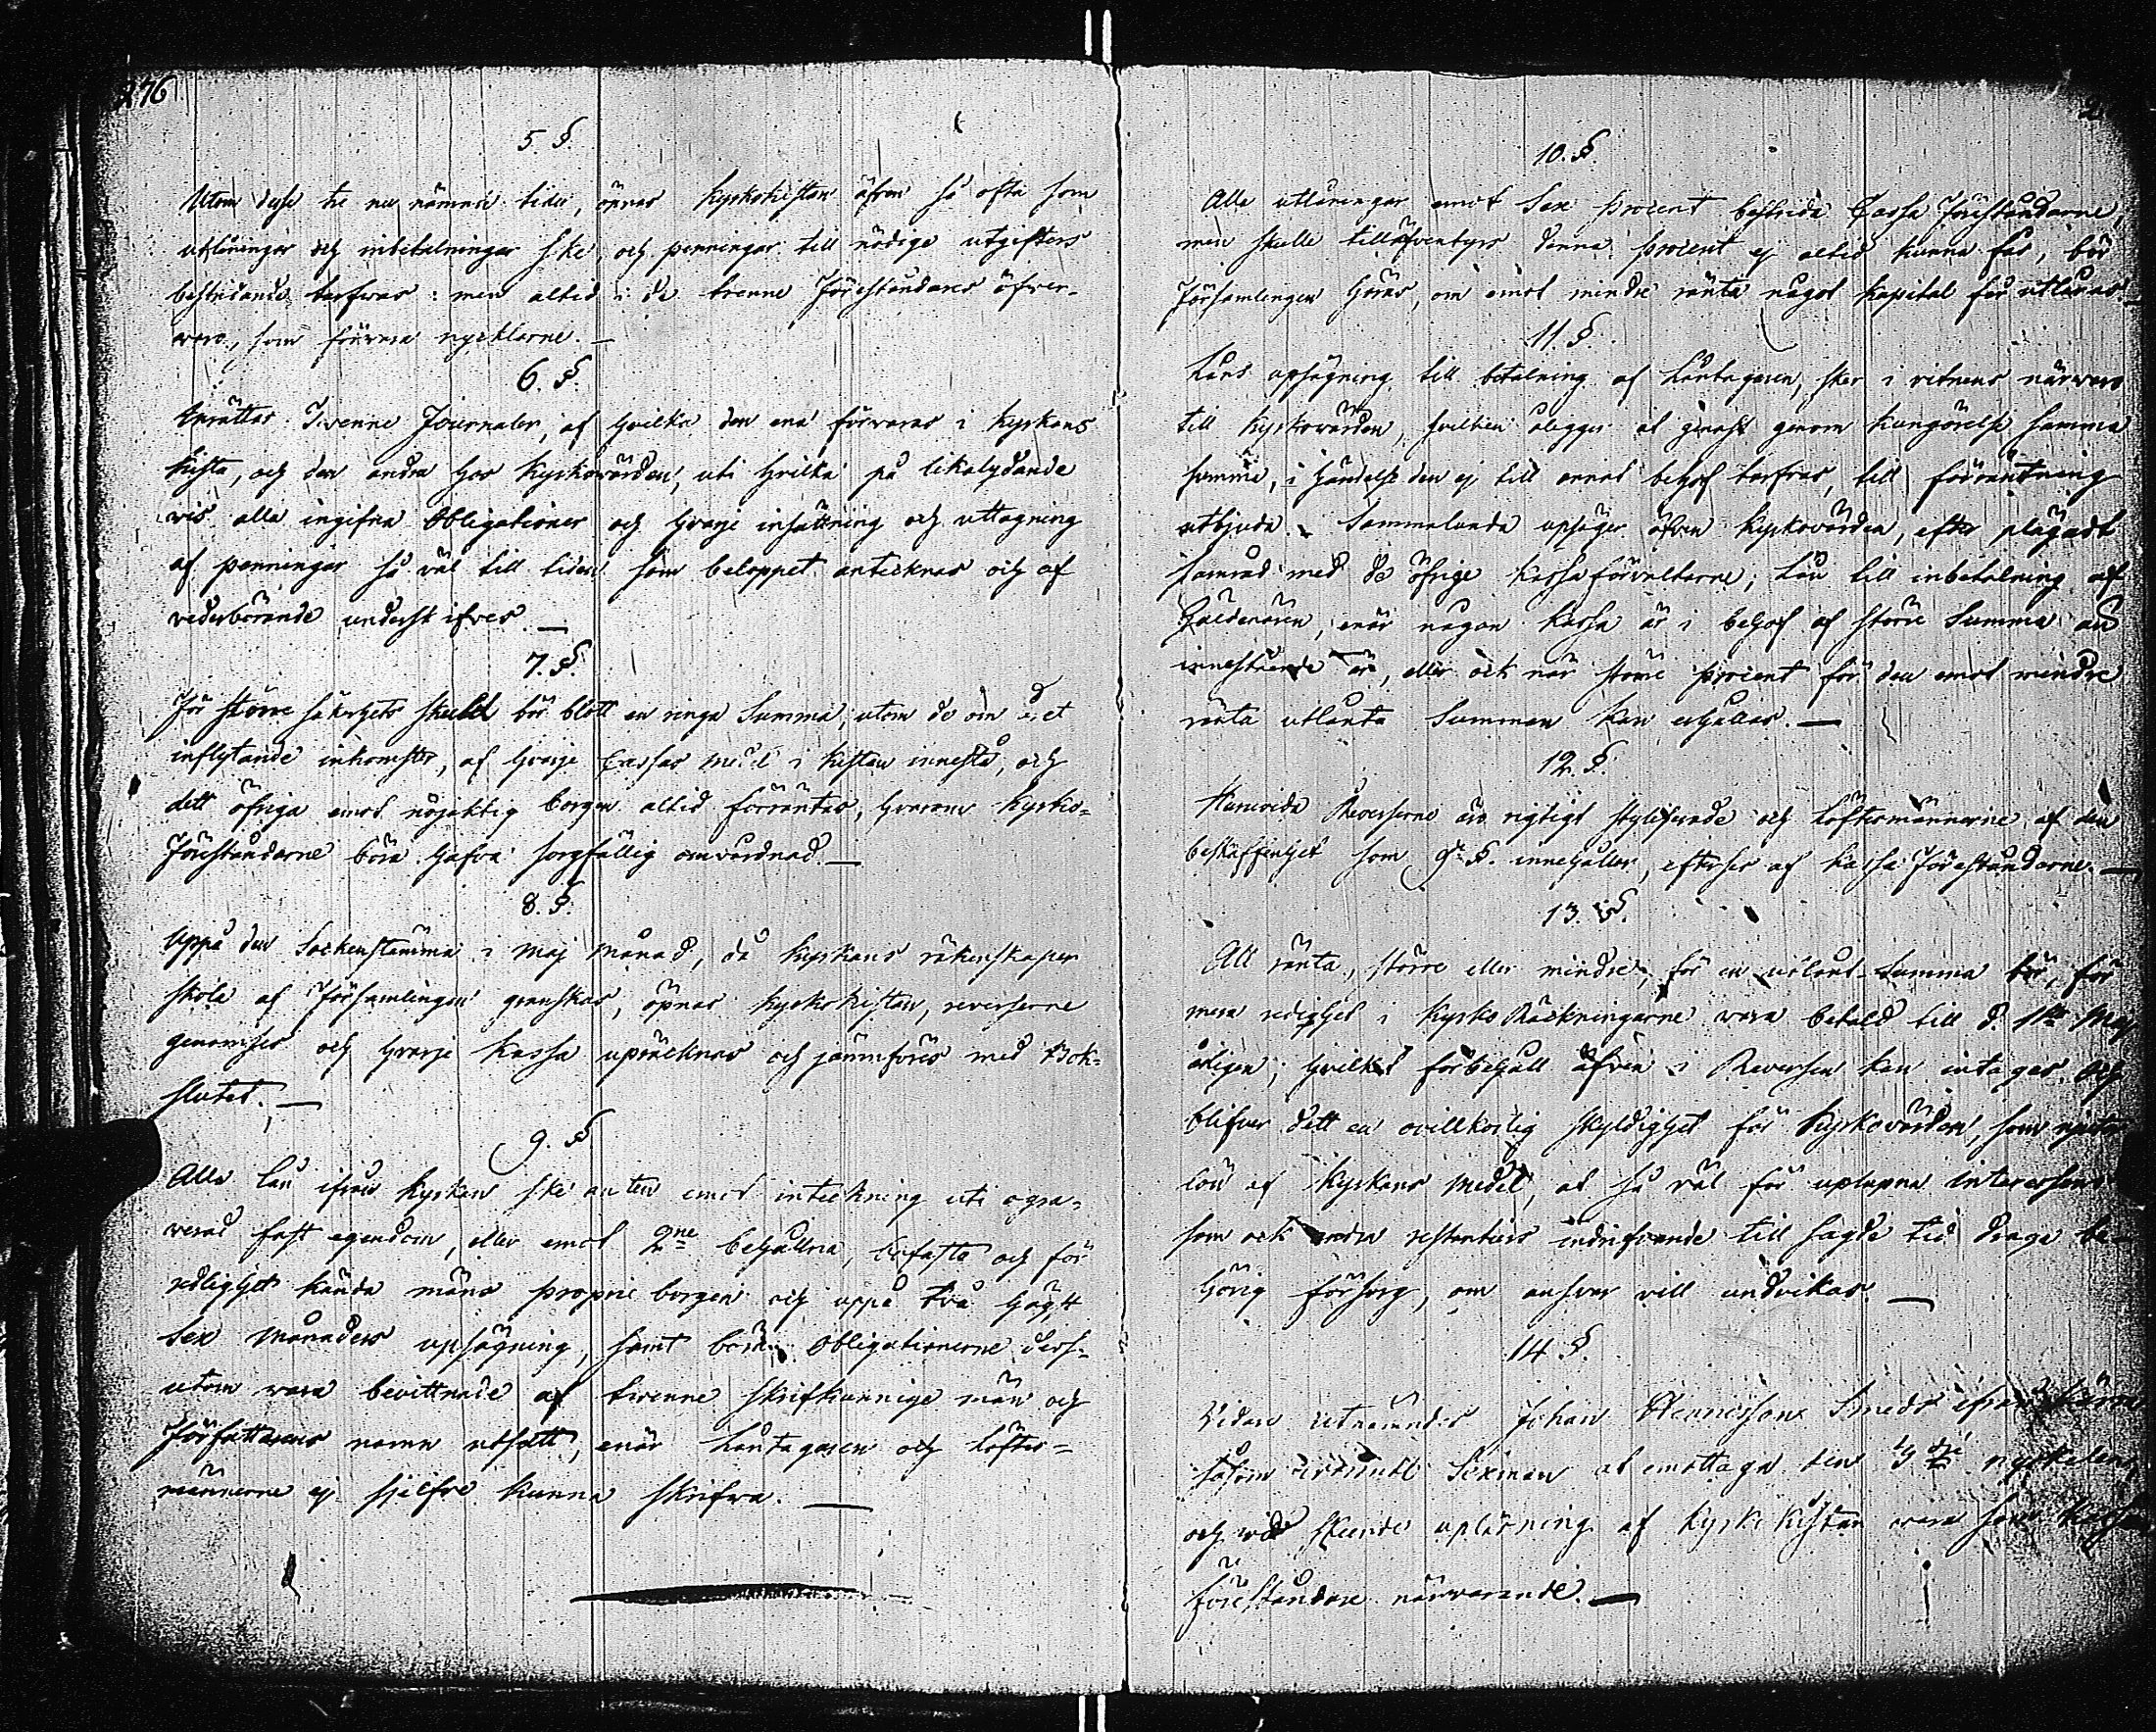 276
5. §.
Utom dessa tre nu nämnde tider, öpnas kyrkokistan äfven så ofta som
utlåningar och inbetalningar ske, och penningar till nödige utgifters
bestridande tarfwas: men altid i de trenne Föreståndares öfver-
varo, som förvara nycklarne. —
6. §.
Inrättas Tvenne Journaler, af hvilka den ena förvaras i kyrkans
kista, och den andra hos kyrkovärden, uti hvilka på likalydande
vis alla ingifna Obligationer och hvarje insättning och uttagning
af penningar så väl till tiden som beloppet antecknas och af
vederbörande underskrifves. —
7. §.
För större säkerhets skuld bör blott en ringa Summa, utom de om året
inflytande inkomster, af hvarje Cassas medel i kistan innestå, och
dett öfriga emot nöjaktig borgen altid förräntas, hvarom kyrko-
Föreståndarne böra hafva sorgfällig omvårdnad —
8. §.
Uppå den Sockenstämma i Maj Månad, då kyrkans räkenskaper
skola af Församlingen granskas, öpnas kyrkokistan, reverserne
genomses och hvarje Kassa upräcknas och jämnföres med Bok-
slutet. —
9. §
Alla lån ifrån kyrkan ske antin emot inteckning uti ogra-
verad fast egendom, eller emot 2ne behållna, bofasta och för
redlighet kända mäns proprie borgen och uppå två högst
sex Månaders upsägning, samt böra Obligationerne dess-
utom vara bevittnade af tvenne skrifkunnige män och
Författarens namn utsatt, enär Låntagaren och Löftes-
männerne ej sjelfve kunna skrifva. —
10. §.
Alla utlåningar emot Sex procent bestrida Cassa Föreståndarne,
men skulle tilläfventyrs denna procent ej altid kunna fås, bör
Församlingen höras, om emot mindre ränta något kapital får utlånas. —
11. §.
Låns upsägning till betalning af Låntagaren, sker i vitnens närvaro
till kyrkovärden, hvilken ålegges at genast genom kungörelse samma
summa, i händelse den ej till annat behof tarfvas, till förräntning
utbjuda. Sammalunda upsäger äfven kyrkovärden, efter plägadt
samråd med de öfrige kassaförvaltarne, Lån till inbetalning af
Gäldenären, enär någon kassa är i behof af större Summa än
innestående är, eller ock när större procent för den emot mindre
ränta utlånta Summan kan erhållas. —
12. §.
Huruvida Reverserne äro rigtigt styliserade och Löftesmännerne af den
beskaffenhet som 9de §. innehåller, efterses af kassa Föreståndarne. —
13. §.
All ränta, större eller mindre, för en utlånt Summa bör, för
mera redighet i kyrko Räckningarne vara betald till d. 1sta Maj
årligen, hvilket förbehåll äfven i Reversen kan intagas. Och
blifver dett en ovillkorlig skyldighet för kyrkovärden, som njuter
lön af kyrkans Medel, at så väl för uplupna interessens
som ock andra restantiers indrifvande till sagde tid draga be-
hörig försorg, om ansvar vill undvikas. —
14. §.
Vidare utnämndes Johan Smeds ifrån
såsom Sexman at emottaga den 3dje nyckelen,
och vid skeende uplåsning af kyrkokistan vara som kassa
Föreståndare närvarande. —